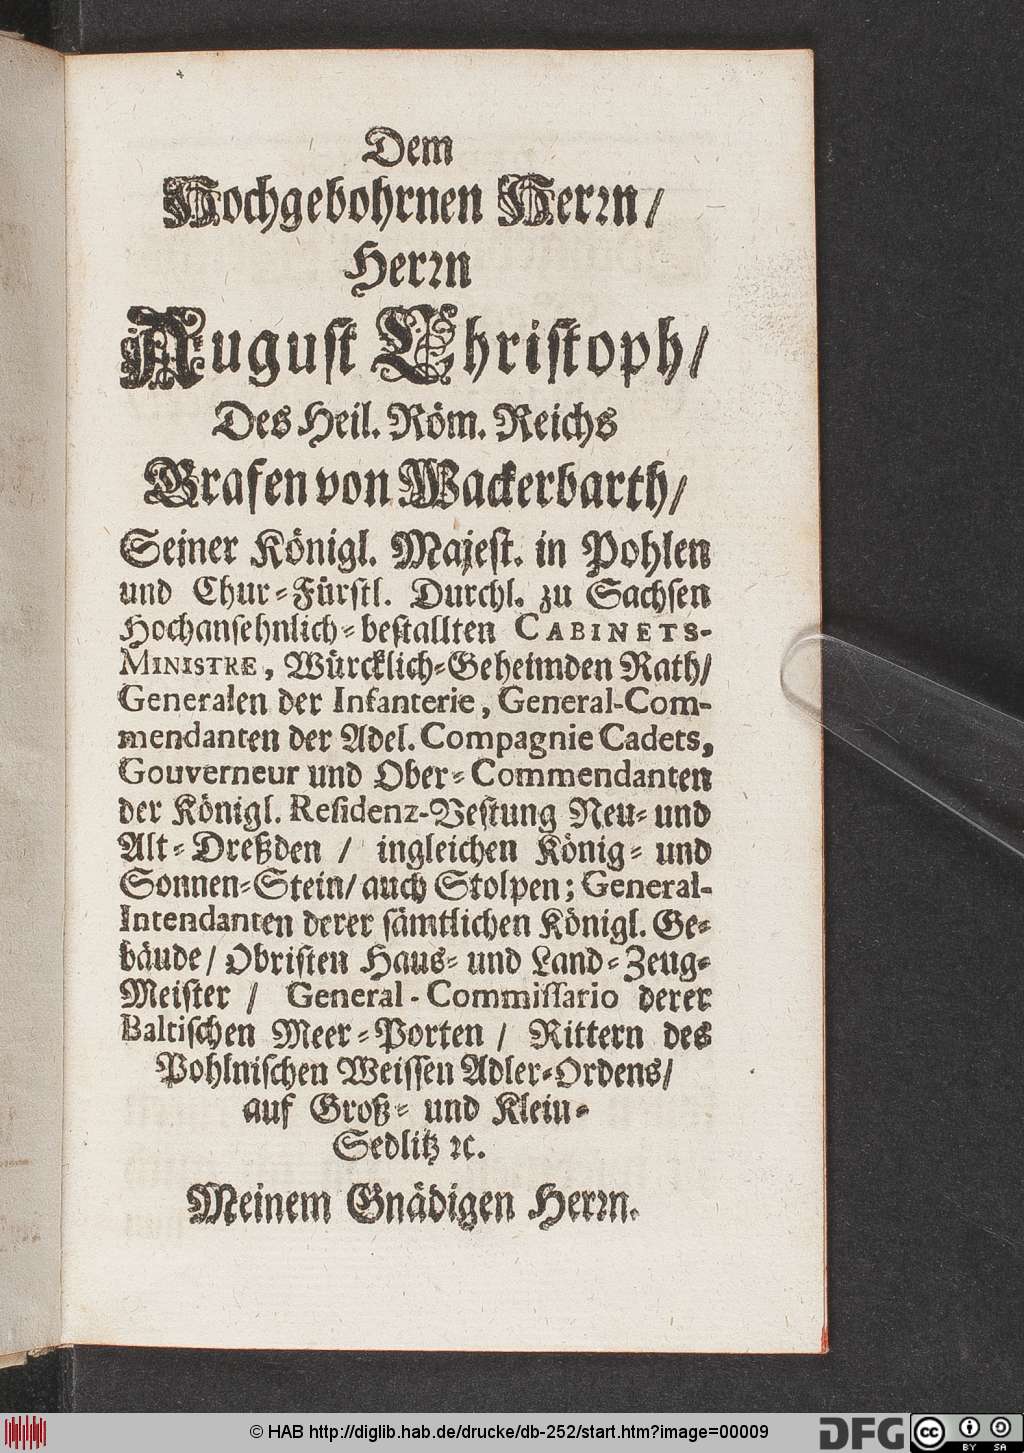 Dem
Hochgebohrnen Herꝛn/
Herꝛn
August Christoph/
Des Heil. Röm. Reichs
Grafen von Wackerbarth/
Seiner Königl. Majest. in Pohlen
und Chur-Fürstl. Durchl. zu Sachsen
Hochansehnlich-bestallten CABINETS-
MINISTRE, Würcklich-Geheimden Rath/
Generalen der Infanterie, General-Com-
mendanten der Adel. Compagnie Cadets,
Gouverneur und Ober-Commendanten
der Königl. Residenz-Vestung Neu- und
Alt-Dreßden / ingleichen König- und
Sonnen-Stein/ auch Stolpen; General-
Intendanten derer sämtlichen Königl. Ge-
bäude/ Obristen Haus- und Land-Zeug-
Meister / General-Commissario derer
Baltischen Meer-Porten / Rittern des
Pohlnischen Weissen Adler-Ordens/
auf Groß- und Klein-
Sedlitz ꝛc.
Meinem Gnädigen Herꝛn.
© HAB http://diglib.hab.de/drucke/db-252/start.htm?image=00009
DFG
cc
BY SA